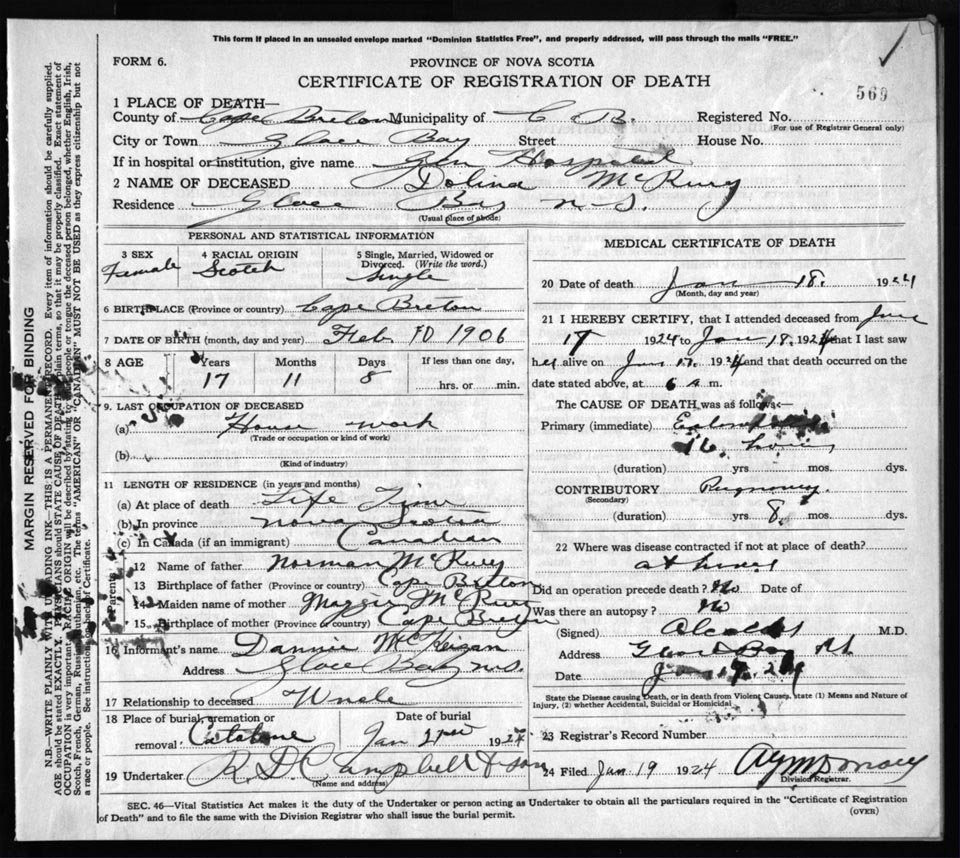 This form if placed in an unsealed envelope marked "Dominion Statistics Free", and properly addressed, will pass through the mails "FREE."
FORM 6.
PROVINCE OF NOVA SCOTIA
CERTIFICATE OF REGISTRATION OF DEATH
569
1 PLACE OF DEATH—
County of Cape Breton Municipality of C B. Registered No.
(For use of Registrar General only)
City or Town Glace Bay Street House No.
If in hospital or institution, give name Gen Hospital
2 NAME OF DECEASED Dolina McRury
Residence Glace Bay N.S.
(Usual place of abode)
PERSONAL AND STATISTICAL INFORMATION
3 SEX Female
4 RACIAL ORIGIN Scotch
5 Single, Married, Widowed or Divorced. (Write the word.) Single
6 BIRTHPLACE (Province or country) Cape Breton
7 DATE OF BIRTH (month, day and year) Feb 10 1906
8 AGE Years Months Days If less than one day,
17 11 8 hrs. or min.
9. LAST OCCUPATION OF DECEASED
(a) House work
(Trade or occupation or kind of work)
(b)
(Kind of industry)
11 LENGTH OF RESIDENCE (in years and months)
(a) At place of death Life Time
(b) In province Nova Scotia
(c) In Canada (if an immigrant) Canadian
Parents
12 Name of father Norman McRury
13 Birthplace of father (Province or country) Cape Breton
14 Maiden name of mother Maggie McRury
15. Birthplace of mother (Province or country) Cape Breton
16 Informant's name Dannie McKeigan
Address Glace Bay N.S.
17 Relationship to deceased Uncle
18 Place of burial, cremation or removal: Catalone Date of burial Jan 21st 1924
19 Undertaker R. D. Campbell & Son
(Name and address)
MEDICAL CERTIFICATE OF DEATH
20 Date of death Jan 18. 1924
(Month, day and year)
21 I HEREBY CERTIFY, that I attended deceased from
17 1924 to Jan 18. 1924 that I last saw
her alive on Jan 17. 1924 and that death occurred on
date stated above, at 6 a m.
The CAUSE OF DEATH was as follows:—
Primary (immediate)
16
(duration) yrs. mos. dys.
CONTRIBUTORY Pregnancy
(Secondary)
(duration) yrs 8. mos. dys.
22 Where was disease contracted if not at place of death?
at home
Did an operation precede death? No Date of
Was there an autopsy? No
(Signed) M.D.
Address Glace Bay
Date Jan 19. 24
State the Disease causing Death, or in death from Violent Causes, state (1) Means and Nature of Injury, (2) whether Accidental, Suicidal or Homicidal
23 Registrar's Record Number
24 Filed Jan 19 1924
Division Registrar.
SEC. 46—Vital Statistics Act makes it the duty of the Undertaker or person acting as Undertaker to obtain all the particulars required in the "Certificate of Registration
of Death" and to file the same with the Division Registrar who shall issue the burial permit.
(OVER)
MARGIN RESERVED FOR BINDING
N.B.—WRITE PLAINLY WITH UNFADING INK—THIS IS A PERMANENT RECORD. Every item of information should be carefully supplied.
AGE should be stated EXACTLY. PHYSICIANS should STATE CAUSE OF DEATH in plain terms, so that it may be properly classified. Exact statement of
OCCUPATION is very important. RACIAL ORIGIN will be described by stating to what people or tongue the deceased person belonged, whether English, Irish,
Scotch, French, German, Russian, Ruthenian, etc. The terms "AMERICAN" OR "CANADIAN" MUST NOT BE USED as they express citizenship but not
a race or people. See instructions on back of Certificate.